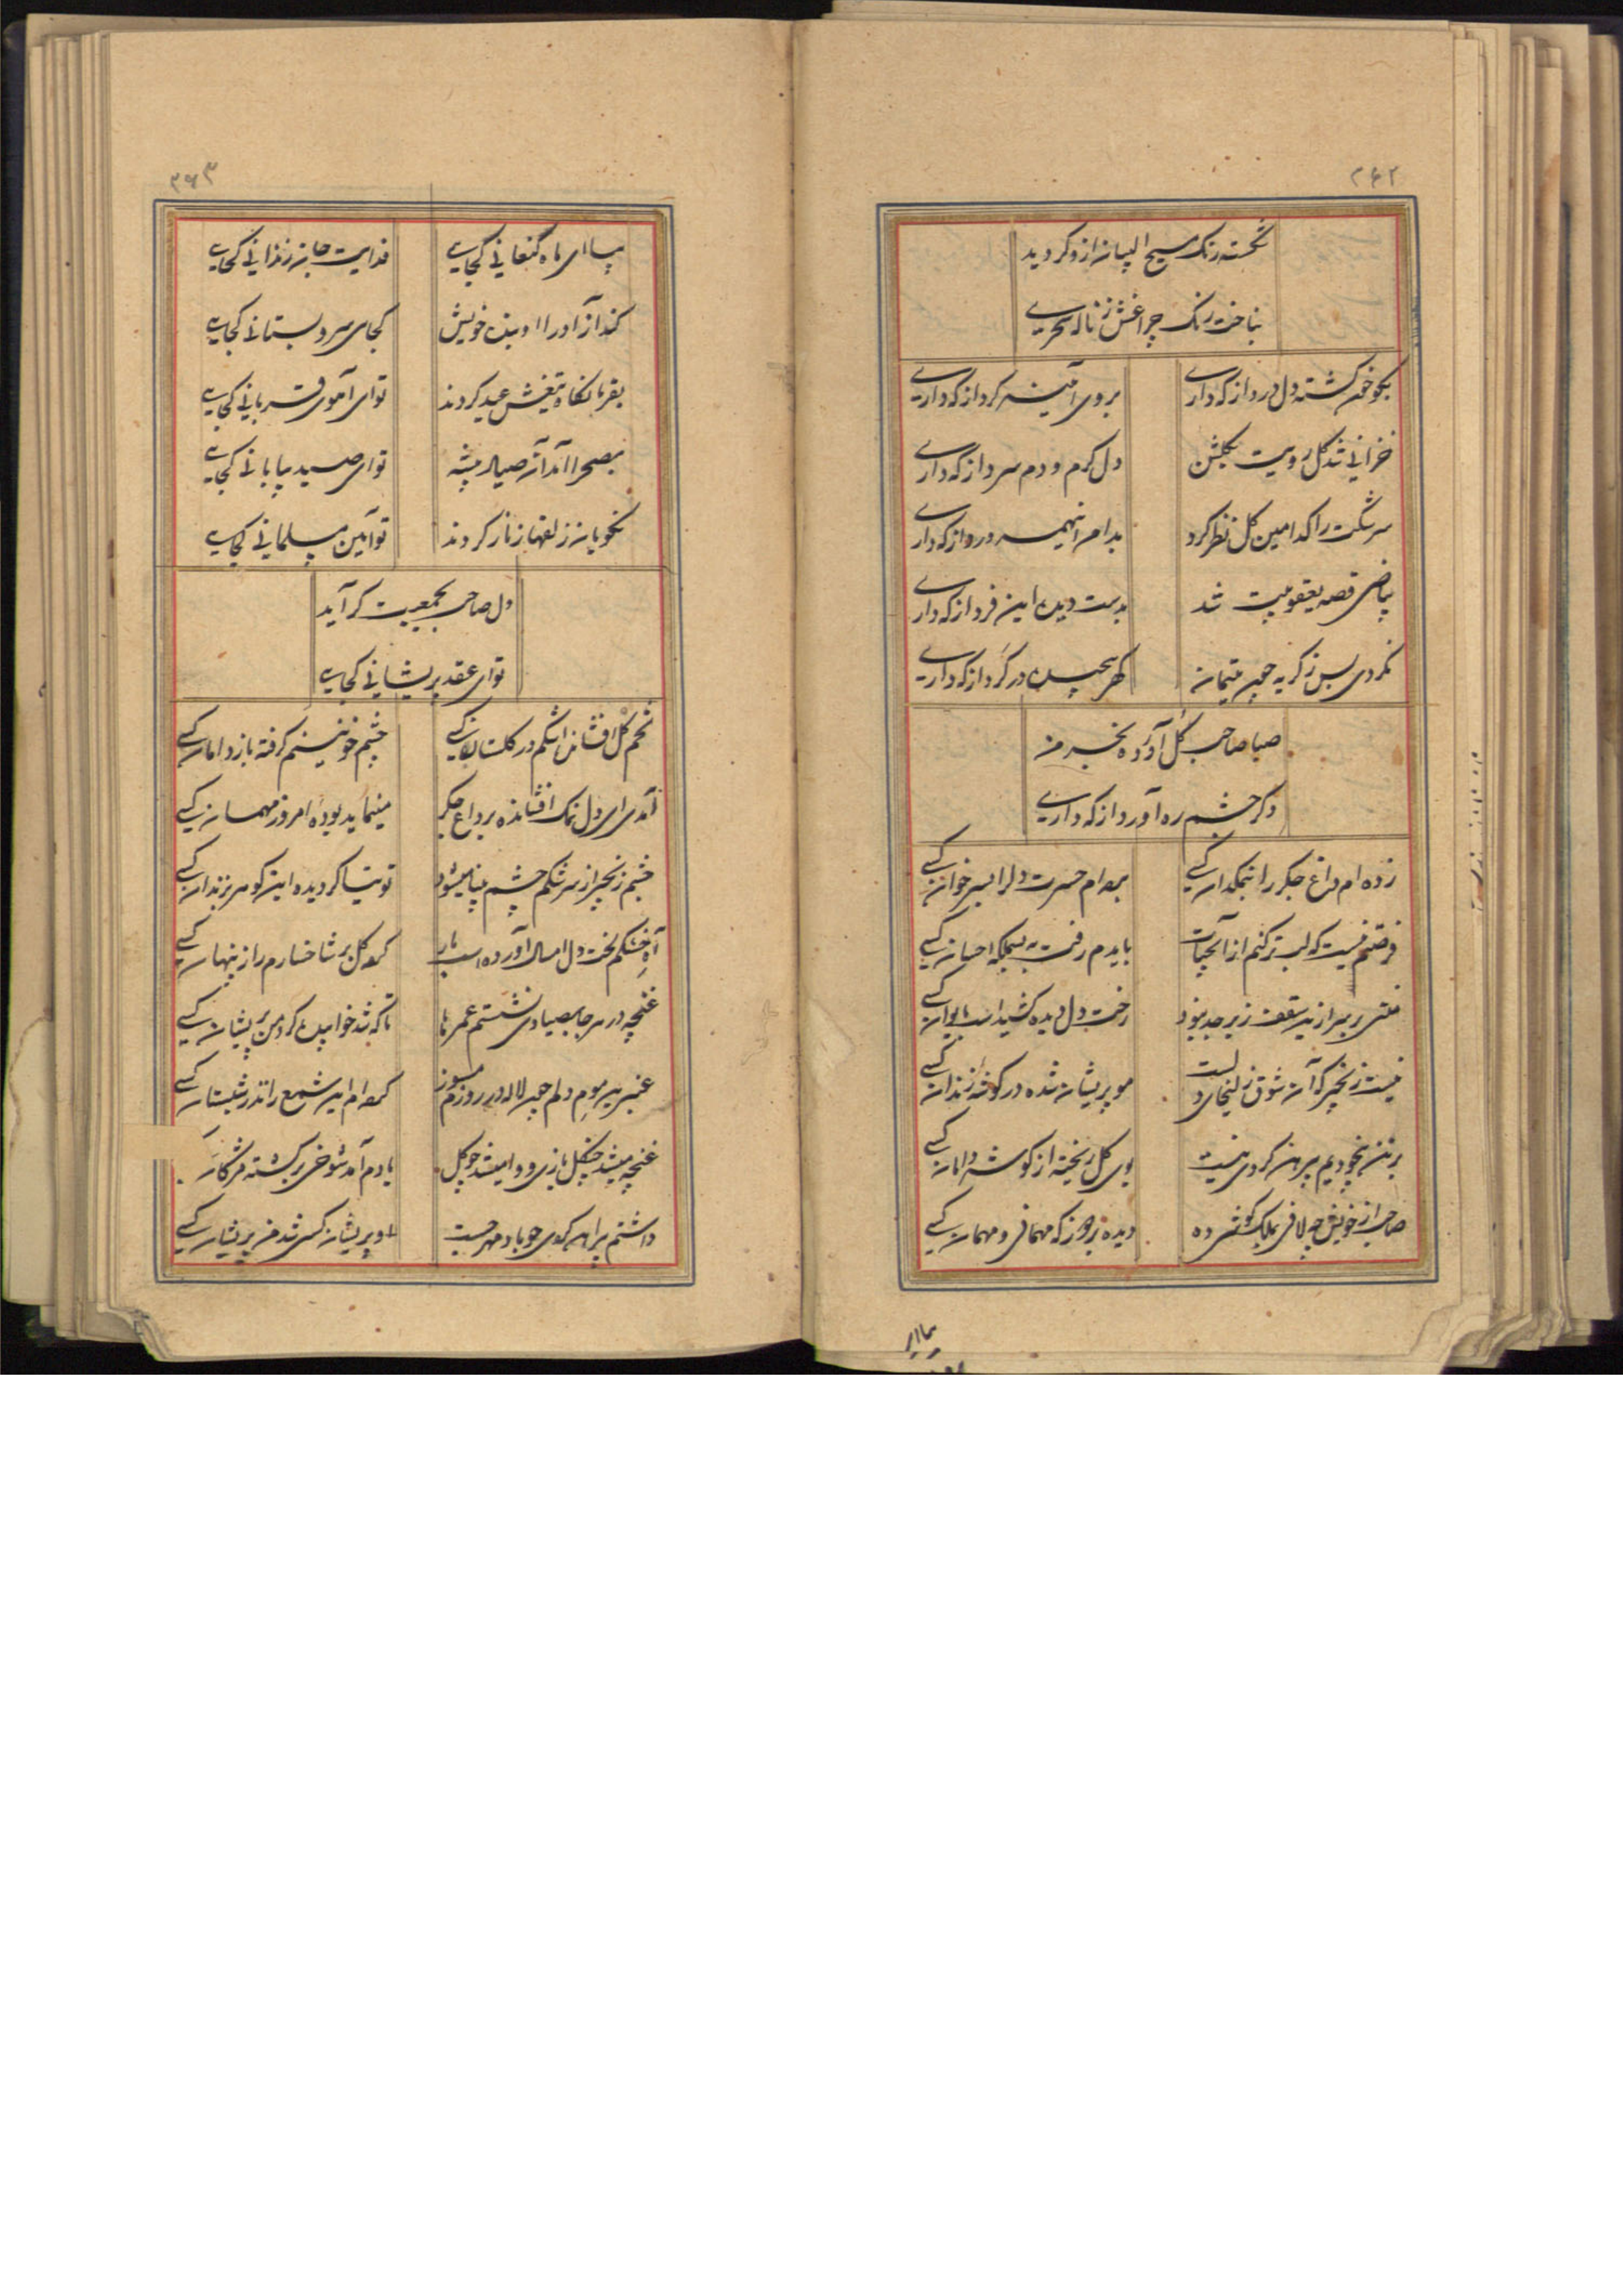 ۲۶۲
شکسته رنگ مسیح الپان از و کردید
بناخت رنک چراغش ز ناله سحری
بگو خون کشته دل درد از که داری
بروی آینه کرد از که داری
خزانی شد کل رویت بکلشن
دل کرم و دم سرد از که داری
سرشکت را کدامین کل نظر کرد
بدامن اینهمه ورد از که داری
بیاض قصه یعقوبیت شد
بدست دیده این فرد از که داری
نکردی بس ز کریه چون یتیمان
کهر پیچیده در کرد از که داری
صبا صاحب کل آورده بخر من
دکر چشم ره آورد از که داری
زده ام داغ جکر را بنمکدان کسی
برده ام حسرت دل را بسر خوان کسی
فرصتم نیست که لب تر کنم از آبحیات
بایدم رفت به احسان کسی
منتی بر سر از ین سقف زبرجد نبود
رخت دل دیده کشیداست بایوان کسی
نیست زنجیر که آن شوق زلیخای دلست
مو پریشان شده در کوشه زندان کسی
بر تن بیخودیم پیرهن کردی نیست
بوی کل ریخته از کوشه دامان کسی
صاحب از خویش چه لافی نمک کوش ده
دیده بر دوز که مهمانی و مهمان کسی
بیا ای
۲۶۳
بیا ای ماه کنعانی کجایی
فدایت جان زندانی کجایی
کند آزاد را بنده خویش
کجای سرو بستانی کجایی
بقربانکاه تیغش عید کردند
تو ای آهوی قربانی کجایی
بصحرا آمد آن صیاد پیشه
تو ای صید بیابانی کجایی
نکویان ز زلفها زنار کردند
تو آیین مسلمانی کجایی
دل صاحب بجمعیت کر آید
تو ای عقد پریشانی کجایی
تخم کل افشاند اشکم در کلستان کسی
چشم خونینم کرفته باز دامان کسی
آمدی ای دل نمک افشانده بر داغ جکر
مینماید بودهٔ امروز مهمان کسی
چشم زنجیر از سرشکم چشم بینا میشود
توتیا کردیده این کوهر بزندان کسی
آه خشکم لخت دل امسال آورده است بار
کرده کل بر شاخسارم راز پنهان کسی
غنچه در هر جا بصیادی نشستم عمرها
تا که شد خوابیده کرد من پریشان کسی
عنبرین موم دلم چون لاله در روزم مسوز
کرده ام این شمع را نذر شبستان کسی
غنچه میشد چنکل بازی و وا میشد چو کل
یادم آمد شوخی برکشته مژکان
داشتم پیراهن کردی چو باد صبحدم
او پریشان کسی شد من پریشان کسی